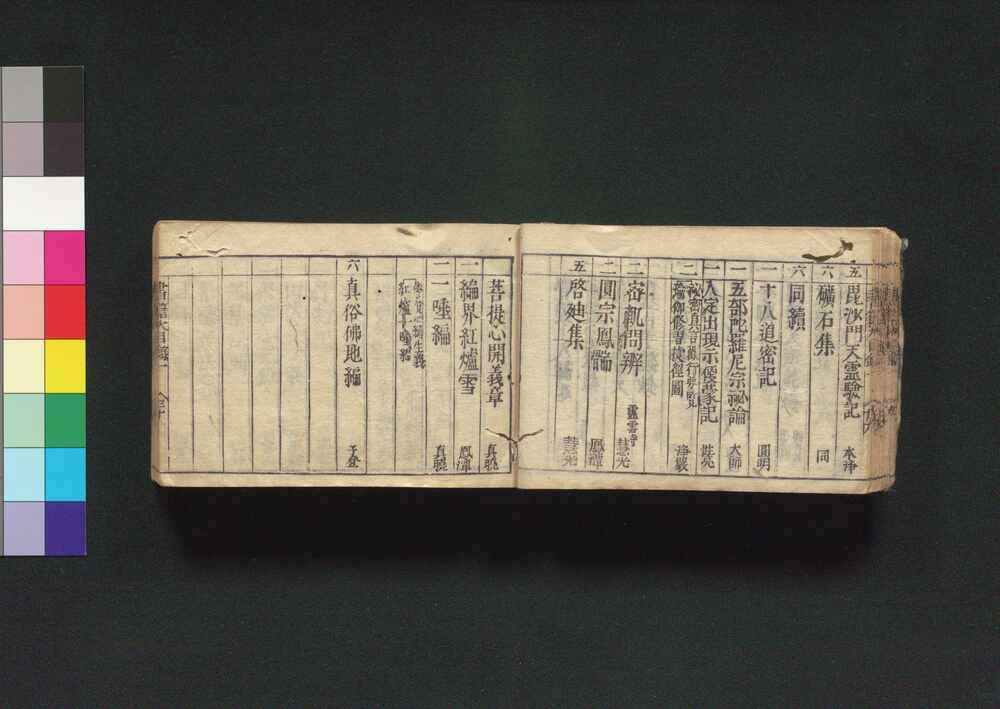 五 毘沙門天靈驗記 本淨
六 礦石集
六 同續 同
一 十八道密記 圓明
一 五部毗維尼宗祕論 大師
一 入定出現示偃象記
二
瑜伽修習捷徑圖 淨嚴
二 密軌問辨 靈雲寺 慧光
二 圓宗鳳髓 鳳潭
五 啓廸集 慧光
菩提心開義章 真曉
一 編界紅爐雪 鳳潭
一 唾編 真曉
六 真俗佛地編